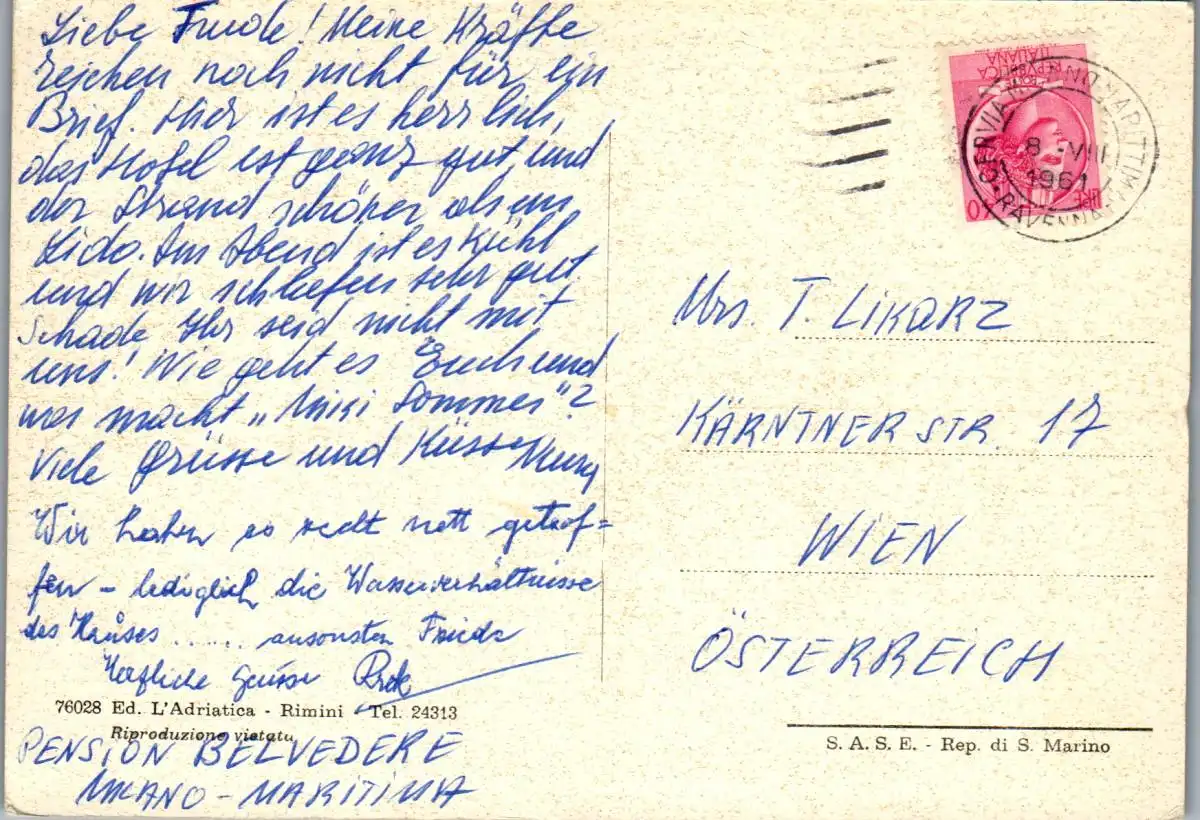 Liebe Trude! Meine Kräfte
reichen noch nicht für ein
Brief. Hier ist es herrlich,
das Hotel ist ganz gut, und
der Strand schöner als im
Lido. Am Abend ist es Kühl
und wir schliefen sehr gut
Schade Ihr seid nicht mit
uns! Wie geht es Euch und
was macht „Miki Sommer"?
Viele Grüsse und Küsse
Wir haben es recht nett getrof=
fen - lediglich die Wasserverhältnisse
des Hauses ...... ansonsten Friede
Herzliche Grüsse
76028 Ed. L'Adriatica - Rimini - Tel. 24313
Riproduzione vietata
PENSION BELVEDERE
MILANO - MARITIMA
REPVBBLICA
ITALIANA
LIRE 40
CERVIA MILANO MARITTIMA
8 - VIII
1961
RAVENNA
Mrs. T. LIKARZ
KÄRNTNER STR. 17
WIEN
ÖSTERREICH
S. A. S. E. - Rep. di S. Marino